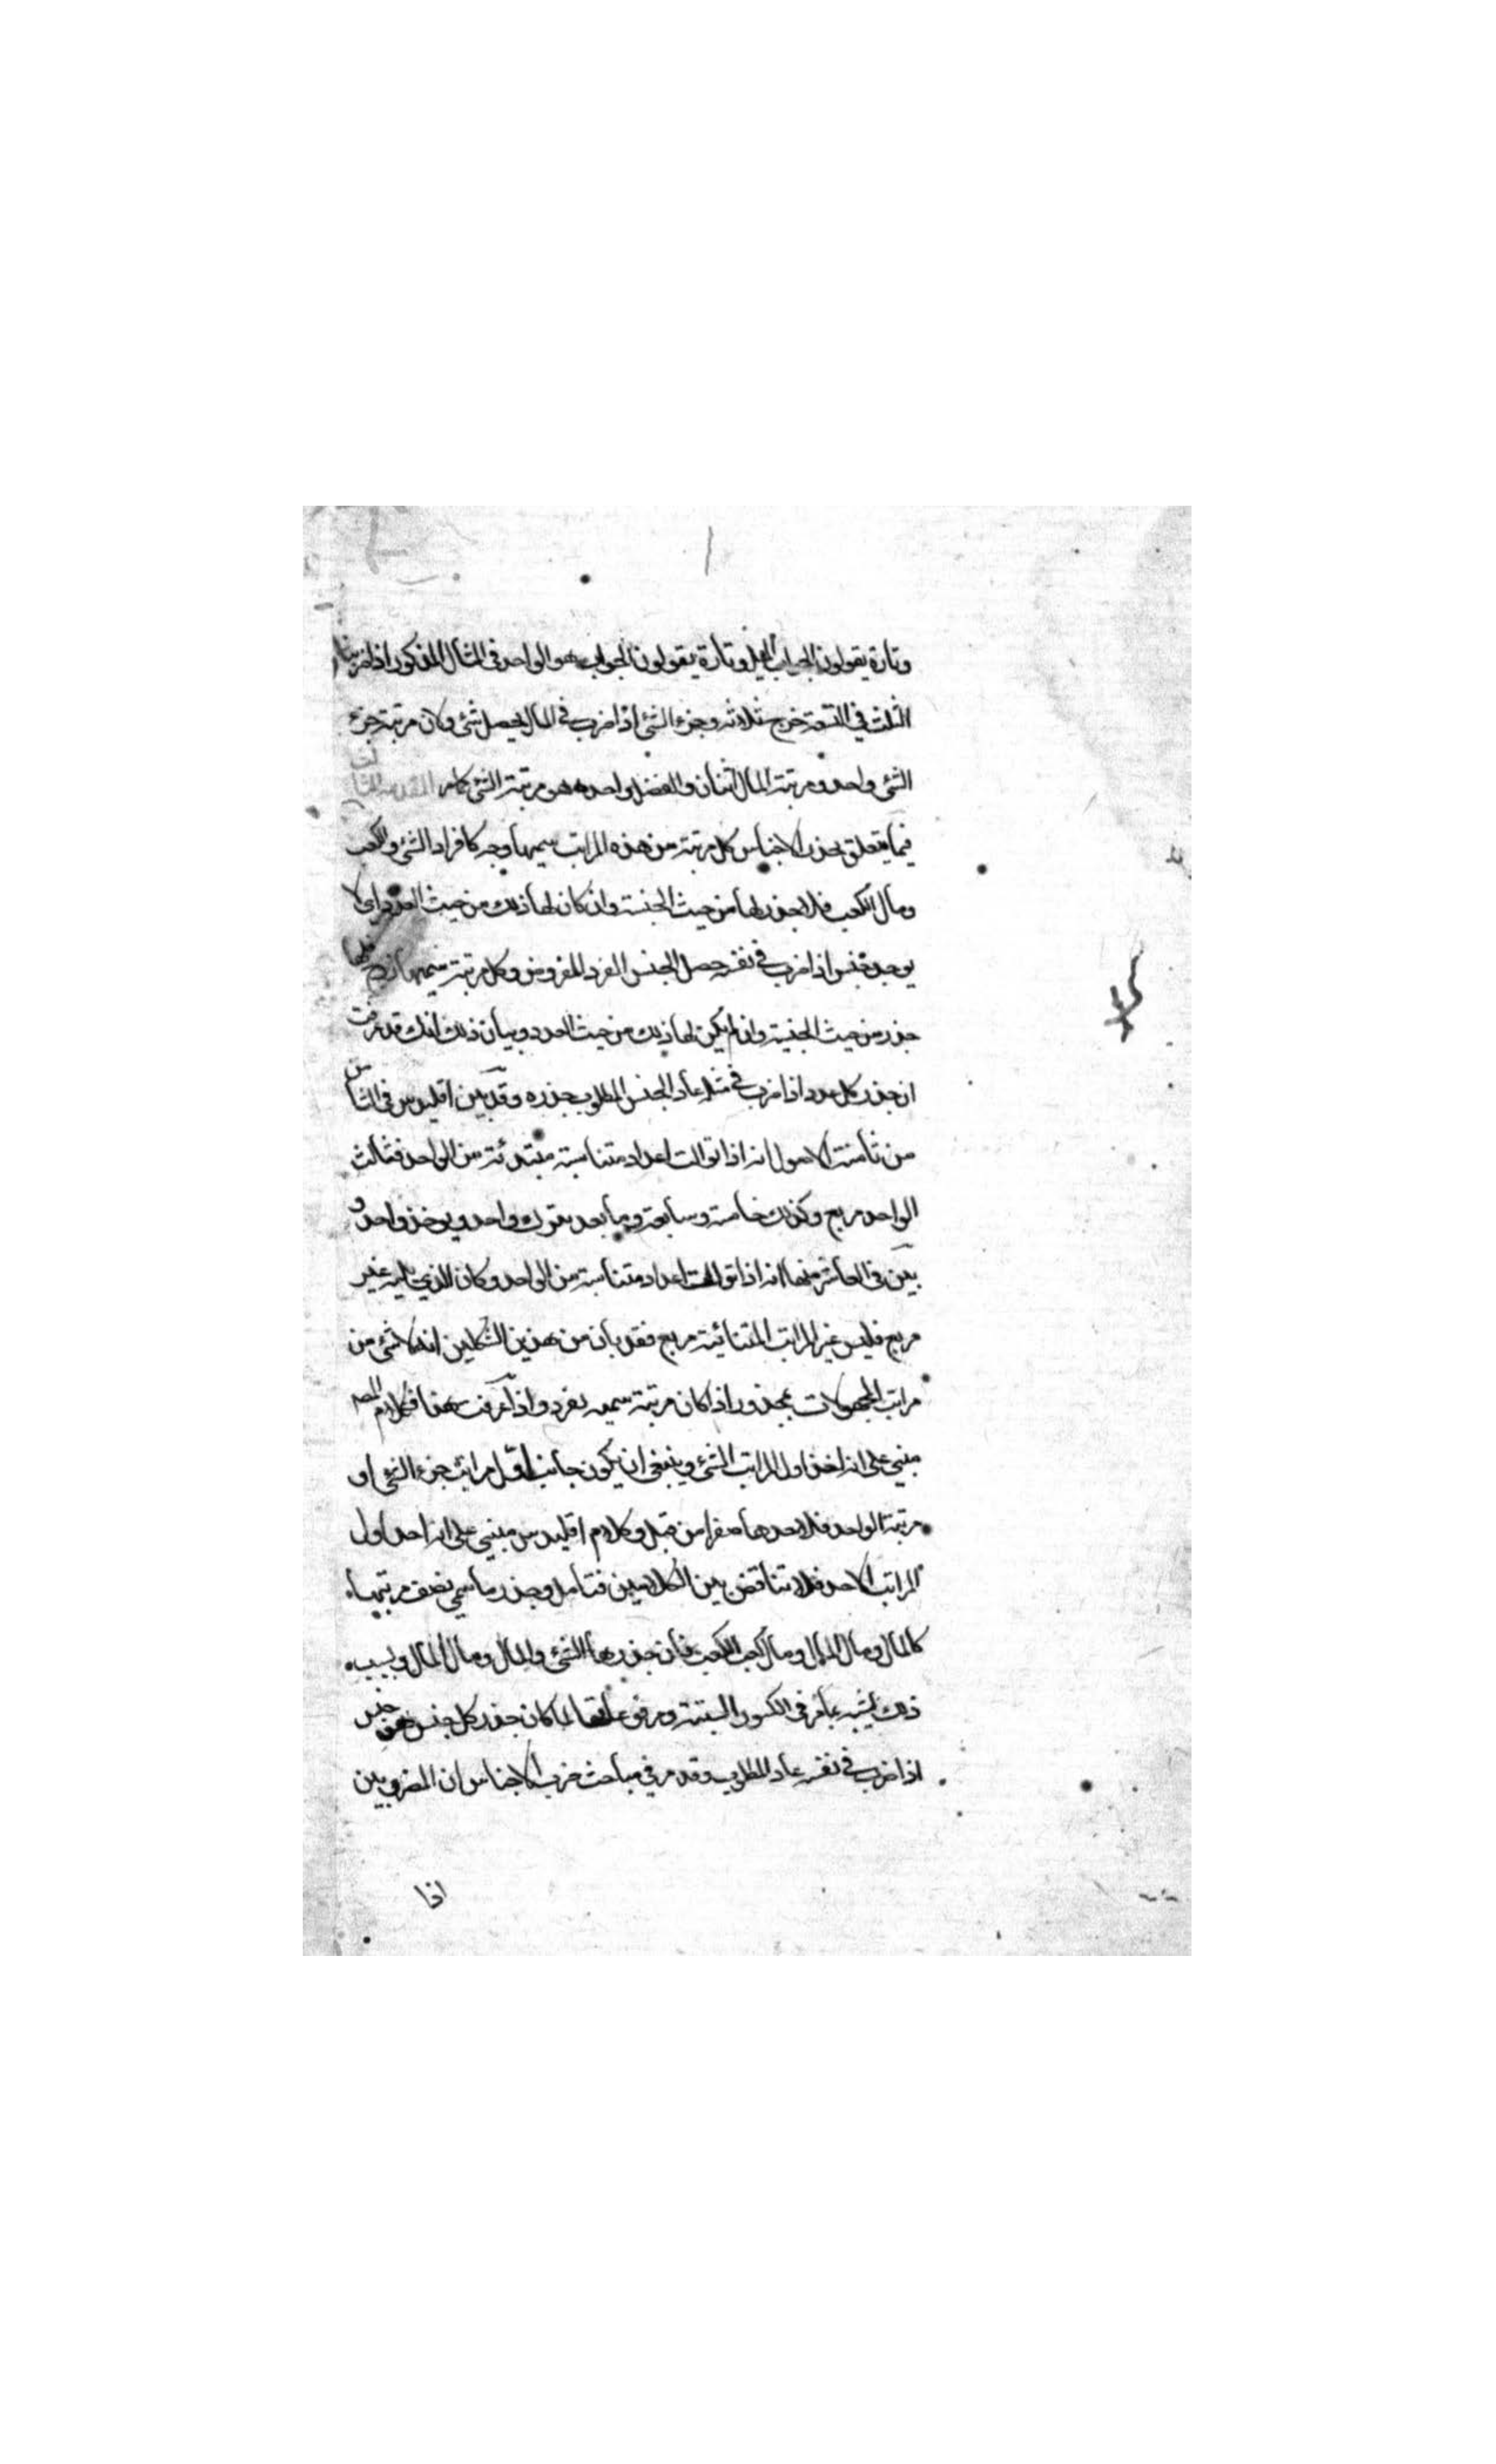 وتارة يقولون الجواب المال وتارة يقولون الجواب هو الواحد في المثال المذكور اذا ضربنا
الثلث في التسعة خرج ثلاثة وجزء الشئ اذا ضرب في المال يحصل شئ ولان مرتبة جزء
الشئ واحد ومرتبة المال اثنان والفضل واحد وهو مرتبة الشئ كما مر المقدمة
فيما يتعلق بجذر الاجناس كل مرتبة من هذه المراتب سميها وجد كافراد الشئ والكعب
ومال الكعب فلا جذر لها من حيث الجنسية وان كان لها ذلك من حيث العدد اي لا
يوجد جنس اذا ضرب في نفسه حصل الجنس الفرد المفروض وكل مرتبة سميها زوج فلها
جذر من حيث الجنسية وان لم يكن لها ذلك من حيث العدد وبيان ذلك انك قد عرفت
ان جذر كل عدد اذا ضرب في مثله عاد الجنس المطلوب جذره وقد بين اقليدس في الثامن
من ثامنة الاصول انه اذا توالت اعداد متناسبة مبتدئة من الواحد فثالث
الواحد مربع وكذلك خامسة وسابعة وما بعد بترك واحد ويوخذ واحد و
بين في العاشر منها انه اذا توالت اعداد متناسبة من الواحد وكان الذي يليه غير
مربع فليس غير المراتب المتنائية مربع فقد بان من هذين الشكلين انه لا شئ من
مراتب المجهولات بمجذور اذا كان مرتبة سميه بفرد واذا عرفت هذا فكلام المصـ
مبني على انه اخذ اول المراتب الشئ وينبغي ان يكون جانب اول مراتب جزء الشئ او
مرتبة الواحد فلا صفرا من قبل وكلام اقليدس مبني على انه احد اول
المراتب الاحد فلا تناقض بين الكلامين فتامل وجذر ما سمي نصف مرتبتها
كالمال ومال المال ومال كعب الكعب فان جذرها الشئ والمال ومال المال وبسبب
ذلك يشبه بما مر في الكسور الستينة ومر في لما كان جذر كل جنس هو جنس
اذا ضرب في نفسه عاد المطلوب وقد مر في مباحث ضرب الاجناس ان المضروبين
اذا